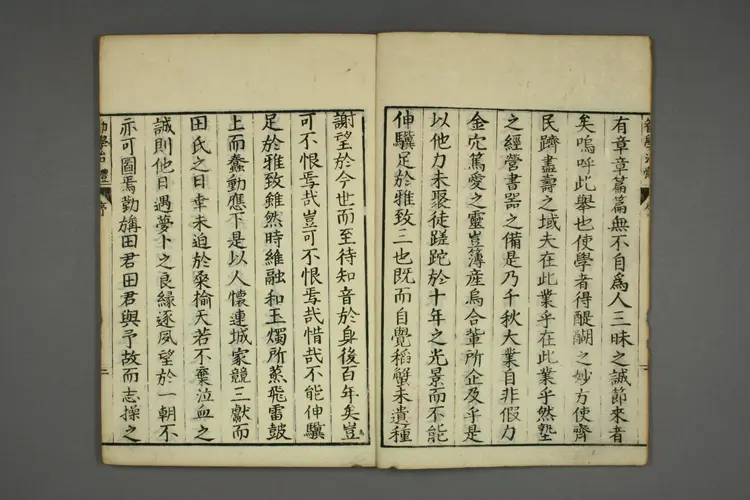 有章章篇篇無不自爲人三昧之誠節來者
矣嗚呼此舉也使學者得醍醐之妙方使齊
民躋盡壽之域夫在此業乎在此業乎然塾
之經營書器之備是乃千秋大業自非假力
金穴篤愛之靈豈簿産烏合輩所企及乎是
以他力未聚徒蹉跎於十年之光景而不能
伸驥足於雅致三也既而自覺稻蟹未遺種
謝望於今世而至待知音於身後百年矣豈
可不恨焉哉豈可不恨焉哉惜哉不能伸驥
足於雅致雖然時維融和玉燭所蒸飛雷鼓
上而蠢動應下是以人懷連城家競三獻而
田氏之日幸未迫於桑榆天若不棄泣血之
誠則他日遇夢卜之良緣逐夙望於一朝不
亦可圖焉勤旃田君田君與予故而志操之
序
二
序